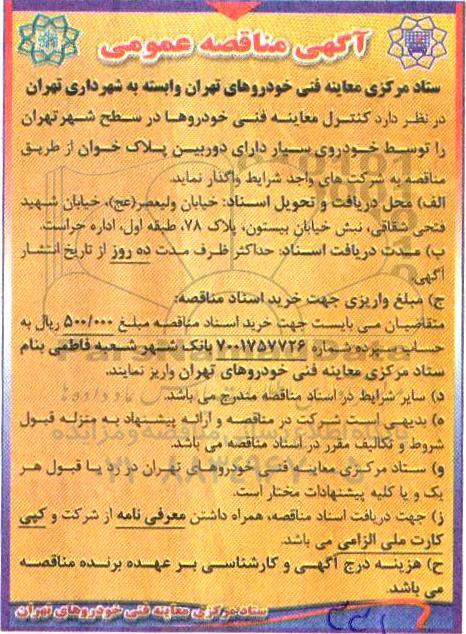 آگهی مناقصه عمومی
ستاد مرکزی معاینه فنی خودروهای تهران وابسته به شهرداری تهران
در نظر دارد کنترل معاینه فنی خودروها در سطح شهر تهران
را توسط خودروی سیار دارای دوربین پلاک خوان از طریق
مناقصه به شرکت های واجد شرایط واگذار نماید.
الف) محل دریافت و تحویل اسناد: خیابان ولیعصر(عج)، خیابان شهید
فتحی شقاقی، نبش خیابان بیستون، پلاک ۷۸، طبقه اول، اداره حراست.
ب) مدت دریافت اسناد: حداکثر ظرف مدت ده روز از تاریخ انتشار
آگهی.
ج) مبلغ واریزی جهت خرید اسناد مناقصه:
متقاضیان می بایست جهت خرید اسناد مناقصه مبلغ ۵۰۰/۰۰۰ ریال به
حساب سپرده شماره ۷۰۰۱۷۵۷۷۲۶ بانک شهر شعبه فاطمی بنام
ستاد مرکزی معاینه فنی خودروهای تهران واریز نمایند.
د) سایر شرایط در اسناد مناقصه مندرج می باشد.
ه) بدیهی است شرکت در مناقصه و ارائه پیشنهاد به منزله قبول
شروط و تکالیف مقرر در اسناد مناقصه می باشد.
و) ستاد مرکزی معاینه فنی خودروهای تهران در رد یا قبول هر
یک و یا کلیه پیشنهادات مختار است.
ز) جهت دریافت اسناد مناقصه، همراه داشتن معرفی نامه از شرکت و کپی
کارت ملی الزامی می باشد.
ح) هزینه درج آگهی و کارشناسی بر عهده برنده مناقصه
می باشد.
ستاد مرکزی معاینه فنی خودروهای تهران